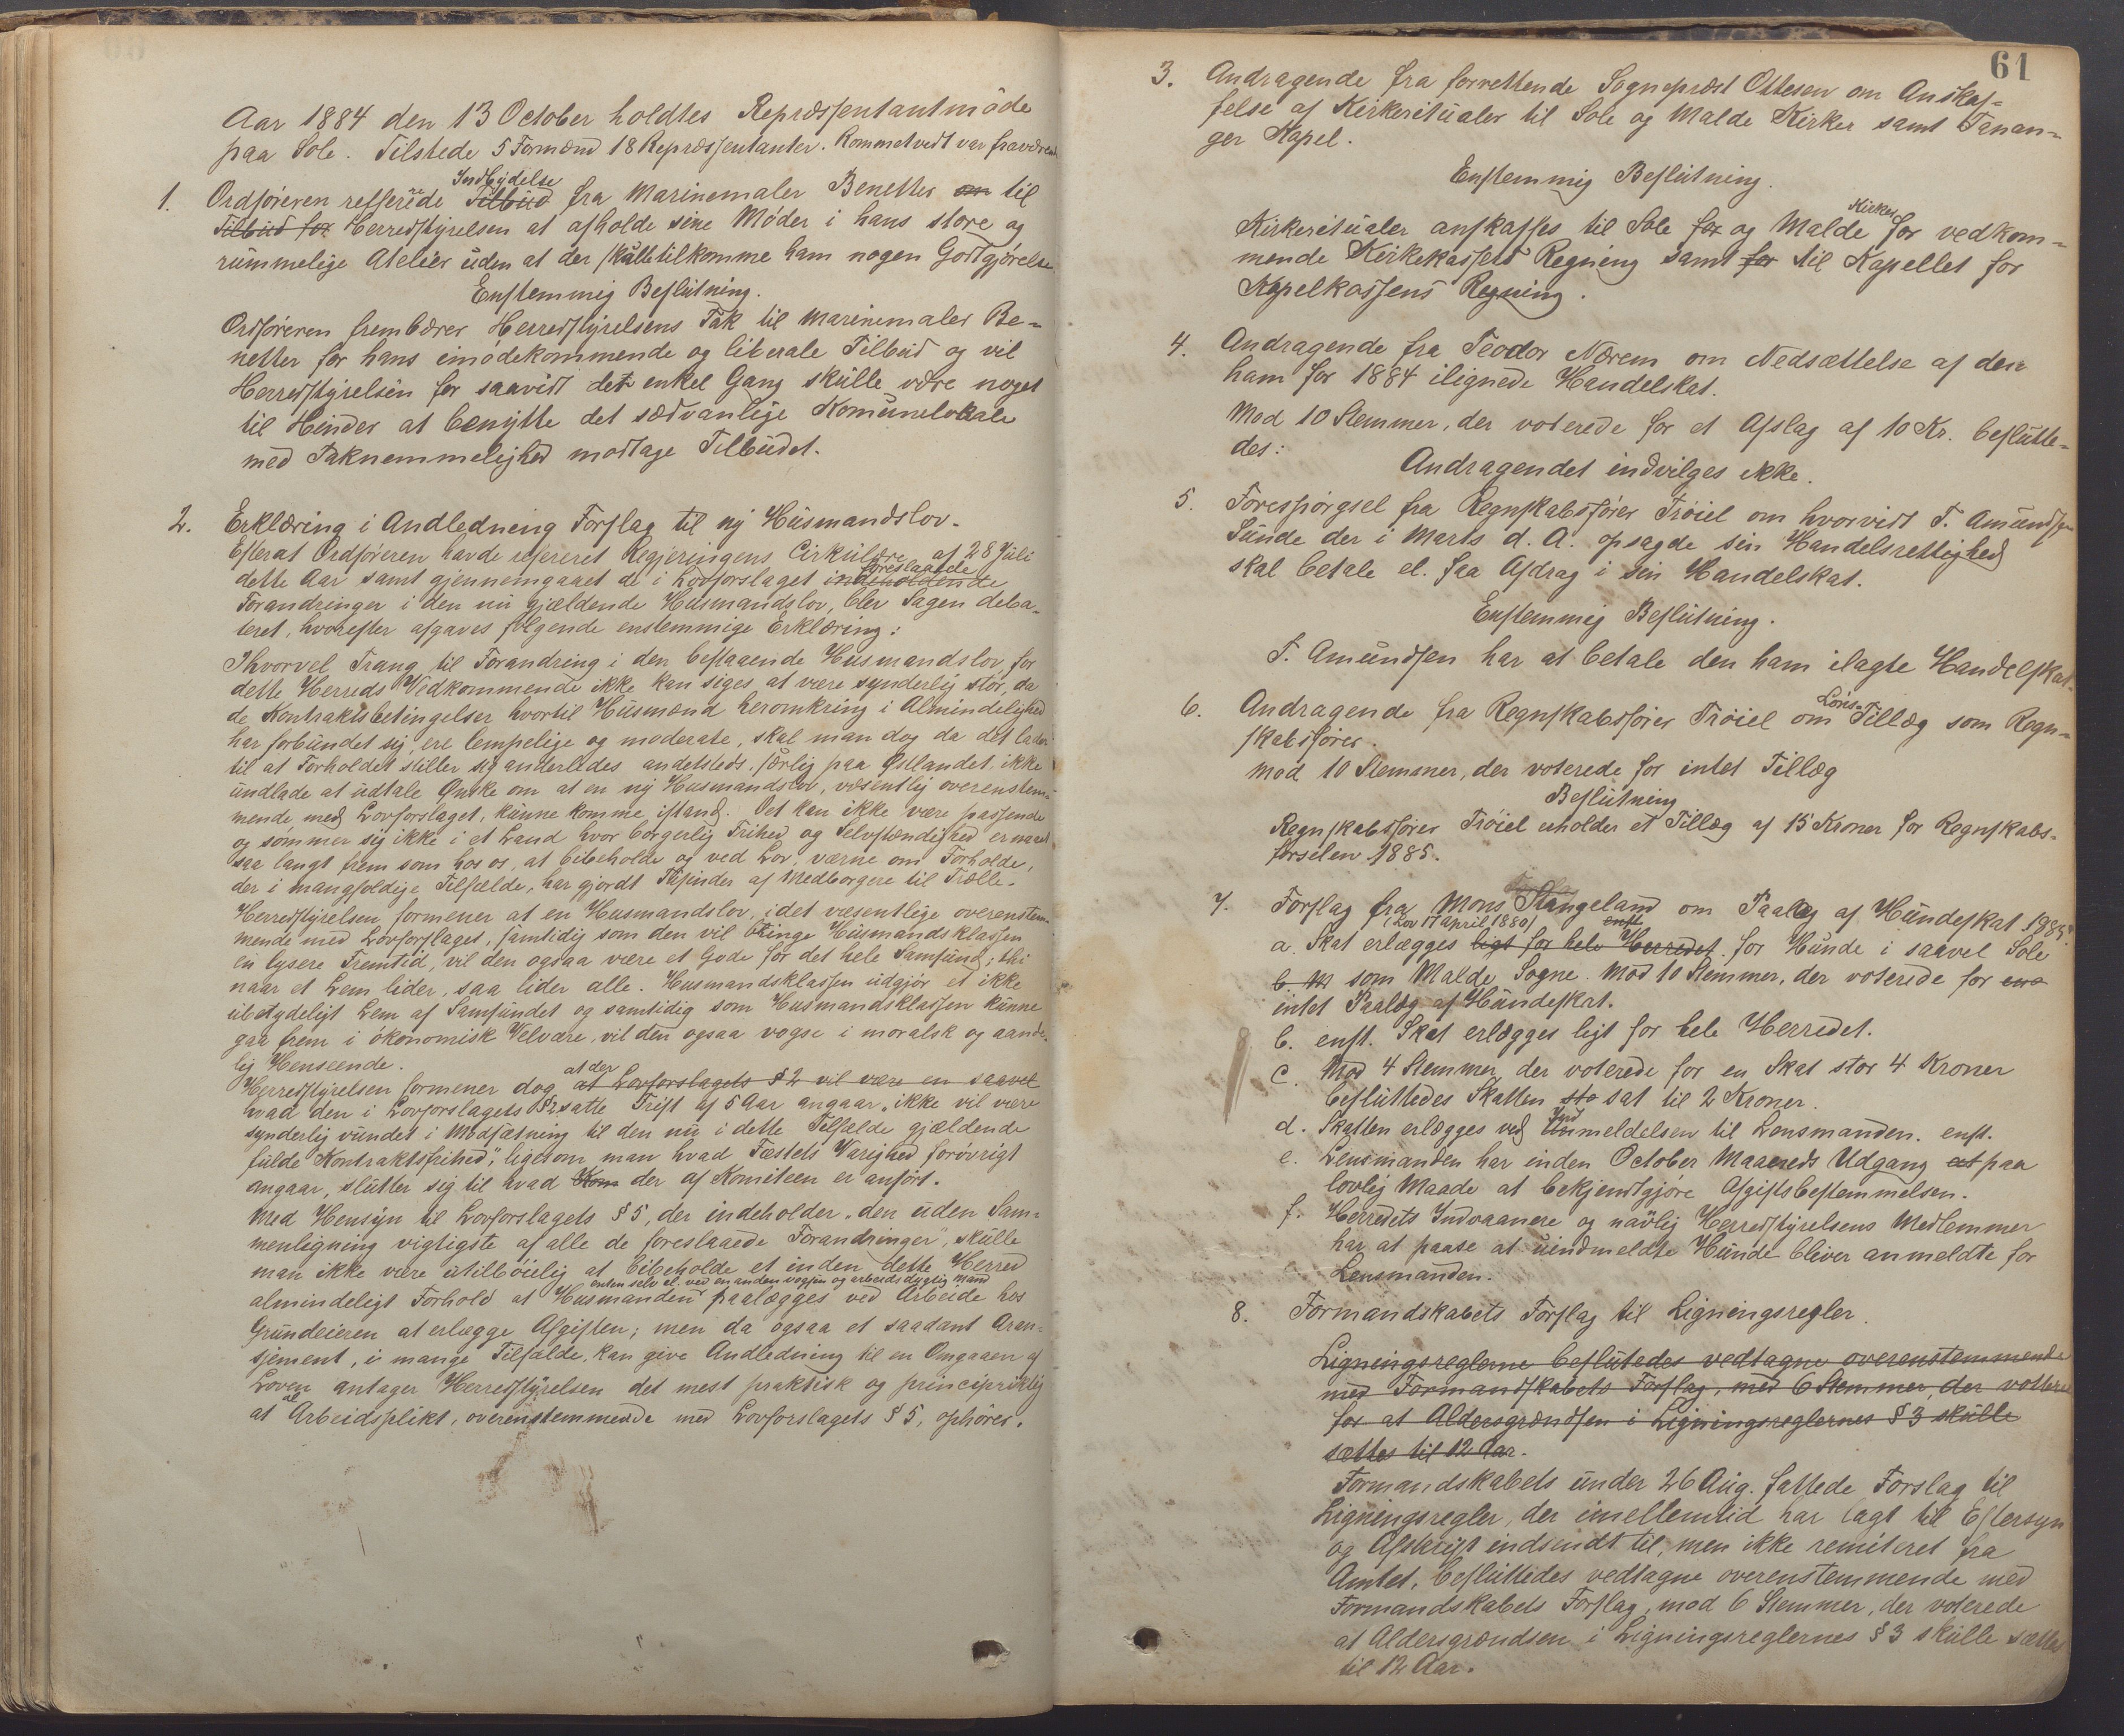 Aar 1884 den 13 October holdtes Repræsentantmöde
paa Sole. Tilstede 5 Formænd 18 Repræsentanter. Kommetvedt var fraværende
1. Ordføreren refferede Indbydelse Tilbud fra Marinemaler Benetter om til
Tilbud for Herredstyrelsen at afholde sine Møder i hans store og
rummelige Atelier uden at der skulle tilkomme ham nogen Godtgjørelse
Enstemmig Beslutning.
Ordføreren frembærer Herredstyrelsens Tak til Marinemaler Be-
netter for hans imødekommende og liberale Tilbud og vil
Herredstyrelsen for saavidt det enkel Gang skulle være noget
til Hinder at benytte det sædvanlige Komunelokale
med Taknemmelighed modtage Tilbudet.
2. Erklæring i Andledning Forslag til ny Husmandslov.
Efterat Ordføreren havde refereret Regjeringens Cirkulære af 28 Juli
dette Aar samt gjennemgaaet de i Lovforslaget indeholdende foreslaaede
Forandringer i den nu gjældende Husmandslov, blev Sagen deba-
teret, hvorefter afgaves følgende enstemmige Erklæring:
Ihvorvel Trang til Forandring i den bestaaende Husmandslov, for
dette Herreds Vedkommende ikke kan siges at være synderlig stor, da
de Kontraktsbetingelser hvortil Husmænd heromkring i Almindelighed
har forbundet sig, ere lempelige og moderate, skal man dog da det lader
til at Forholdet stiller sig anderledes andetsteds, særlig paa Østlandet, ikke
undlade at udtale Ønske om at en ny Husmandslov, væsentlig overenstem-
mende med Lovforslaget, kunne komme istand. Det kan ikke være passende
og sømmer sig ikke i et Land hvor borgerlig Frihed og Selvstændighed er naaet
saa langt frem som hos os, at bibeholde og ved Lov, værne om Forholde,
der i mangfoldige Tilfælde, har gjordt Tusinder af Medborgere til Trælle.
Herredstyrelsen formener at en Husmandslov, i det væsentlige overenstem-
mende med Lovforslaget, samtidig som den vil bringe Husmandsklassen
en lysere Fremtid, vil den ogsaa være et Gode for det hele Samfund; thi
naar et Lem lider, saa lider alle. Husmandsklassen udgjør et ikke
ubetydeligt Lem af Samfundet og samtidig som Husmandsklassen kunne
gaa frem i økonomisk Velvære, vil den ogsaa vogse i moralsk og aande-
lig Henseende.
Herredstyrelsen formener dog at der at Lovforslagets § 2 vil være en saavel
hvad den i Lovforslagets § 2 satte Frist af 5 Aar angaar, ikke vil være
synderlig vundet i Modsætning til den nu i dette Tilfælde gjældende
fulde "Kontraktsfrihed", ligesom man hvad Fæstets Varighed forøvrigt
angaar, slutter sig til hvad Kom der af Komiteen er anført.
Med Hensyn til Lovforslagets § 5, der indeholder "den uden Sam-
menligning vigtigste af alle de foreslaaede Forandringer", skulle
man ikke være utilbøielig at bibeholde et inden dette Herred
almindeligt Forhold at Husmanden enten selv el. ved en anden vogsen og arbeidsdygtig Mand paalægges ved Arbeide hos
Grundeieren at erlægge Afgiften; men da ogsaa et saadant Aran-
sjement, i mange Tilfælde, kan give Andledning til en Omgaaen af
Loven antager Herredstyrelsen det mest praktisk og principriktig
at al Arbeidsplikt, overenstemmende med Lovforslagets § 5, ophører.
61
3. Andragende fra forrettende Sogneprest Ottesen om Anskaf-
felse af Kirkeritualer til Sole og Malde Kirker samt Tanan-
ger Kapel.
Enstemmig Beslutning.
Kirkeritualer anskaffes til Sole for og Malde Kirker for vedkom-
mende Kirkekassers Regning samt for til Kapellet for
Kapelkassens Regning.
4. Andragende fra Teodor Nærem om Nedsættelse af den
ham for 1884 ilignede Handelskat.
Mod 10 Stemmer, der voterede for et Afslag af 10 Kr. beslutte-
des:
Andragendet indvilges ikke.
5. Forespørgsel fra Regnskabsfører Trøiel om hvorvidt T. Amundsen
Sunde der i Marts d. A. opsagde sin Handelsrettighed
skal betale el. faa Afdrag i sin Handelskat.
Enstemmig Beslutning.
T. Amundsen har at betale den ham ilagte Handelskat.
6. Andragende fra Regnskabsfører Trøiel om Løns-Tillæg som Regn-
skabsfører.
Mod 10 Stemmer, der voterede for intet Tillæg
Beslutning
Regnskabsfører Trøiel erholder et Tillæg af 15 Kroner for Regnskabs-
førselen 1885.
7. Forslag fra Mons Stangeland om Paalæg af Hundeskat 1885.
(Lov 17 April 1880) enst.
a. Skat erlægges ligt for hele Herredet for Hunde i saavel Sole
b. M som Malde Sogne. Mod 10 Stemmer, der voterede for
intet Paalæg af Hundeskat.
b. enst. Skat erlægges ligt for hele Herredet.
c. Mod 4 Stemmer, der voterede for en Skat stor 4 Kroner
besluttedes Skatten sto sat til 2 Kroner.
d. Skatten erlægges ved Indmeldelsen til Lensmanden. enst.
e. Lensmanden har inden October Maaneds Udgang at paa
lovlig Maade at bekjendtgjøre Afgiftsbestemmelsen.
f. Herredets Indvaanere og navlig Herredstyrelsens Medlemmer
har at paase at uindmeldte Hunde bliver anmeldte for
Lensmanden.
8. Formandskabets Forslag til Ligningsregler.
Ligningsreglerne beslutedes vedtagne overenstemmende
med Formandskabets Forslag, med 6 Stemmer, der votterede
for at Aldersgrændsen i Ligningsreglernes § 3 skulle
sættes til 12 Aar.
Formandskabets under 26 Aug. fattede Forslag til
Ligningsregler, der imellemtid har lagt til Eftersyn
og Afskrift indsendt til, men ikke remiteret fra
Amtet, besluttedes vedtagne overenstemmende med
Formandskabets Forslag, mod 6 Stemmer, der voterede
at Aldersgrændsen i Ligningsreglernes § 3 skulle sættes
til 12 Aar.